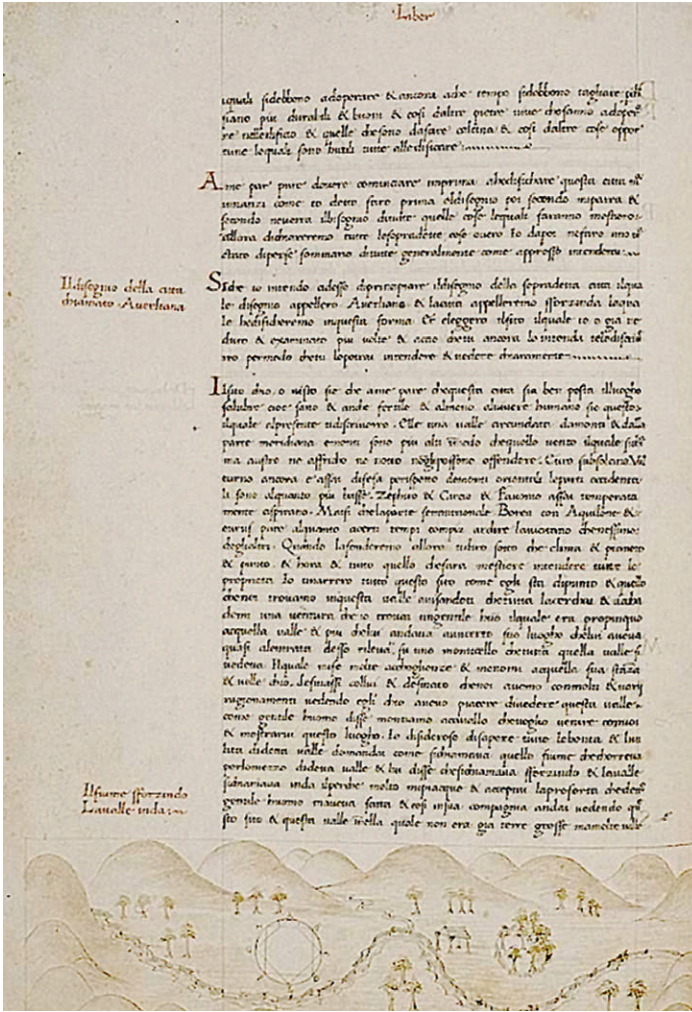 Liber
iquali sidebbono adoperare & ancora ache tempo sidebbono tagliare
siano piu durabili & buoni & cosi daltre pietre uiue chesanno adoper
re nelledificio & quelle chesono dafare calcina & cosi daltre cose oppor
tune lequali sono utili tutte alledificare
A me par pure douere cominciare imprima ahedifichare questa citta
innanzi come io detto faro prima eldisegno poi secondo miparra &
secondo uerra ilbisogno ditutte quelle cose lequali saranno mestiero
allora dichiareremo tutte lesopradette cose ouero
ditutte generalmente come appresso intenderai
Il disegno della citta
chiamato Auerliana
Siche io intendo adesso diprincipiare ildisegno della sopradetta citta ilqua
le disegno appellero Auerliano & lacitta appelleremo sforzinda laqua
le hedificheremo inquesta forma. Et eleggero ilsito ilquale io o gia ue
duto & examinato piu uolte & accio chetu ancora lo intenda telodiscriu
erro permodo chetu lopotrai intendere & uedere chiaramente
Ilsito dico o uisto sie che ame pare chequesta citta sia ben posta illuogho
salubre cioe sano & anche fertile & almeno aluiuere humano sie questo
ilquale alpresente tidiscriuerro. Elle una ualle circundata damonti & dalla
parte meridiana emonti sono piu alti chequello uento ilquale
ma austro ne affrico ne noto possono offendere. Euro subsolano Vul
turno ancora e assai difesa perrispetto demonti orientali leparti occidenta
li sono alquanto piu basse. Zephiro & Circio & Fauonio assai temperata
mente aspirano. Ma chelaparte septentrionale Borea con Aquilone &
pate alquanto acerti tempi
deglialtri. Quando lafonderemo allora tidiro sotto che clima & pianeto
& punto & hora & tutto quello chesara mestiere intendere tutte le
proprieta. Io tinarrero tutto questo sito come egli sta dipunto & quello
chenoi trouamo inquesta ualle
una uentura che io trouai ungentile huomo ilquale era propinquo
acquella ualle & piu chelui andaua auno suo luogho chelui aueua
quasi alentrata desso rileua su uno monticello chetutta quella ualle si
uedeua. Ilquale mise molte accoglienze & menomi acquella sua stanza
& uolle chio desinassi collui & desinato chenoi auemo conmolti & uarii
ragionamenti uedendo egli chio aueuo piacere diuedere questa ualle
come gentile huomo disse montiamo acauallo cheuoglio uenire conuoi
& mostrarui questo luogho. Io disideroso disapere tutte lebonta &
didetta ualle domandai come sichiamaua quello fiume checorreua
perlomezzo didetta ualle & lui disse chesichiamaua sforzindo & laualle
sichiamaua inda ilperche molto mipiacque & acceptai laproferta chedetto
gentile huomo maueua fatta & cosi insua compagnia andai uedendo que
sto sito & questa ualle nella quale non era gia terre grosse
Il fiume sforzindo
La ualle inda